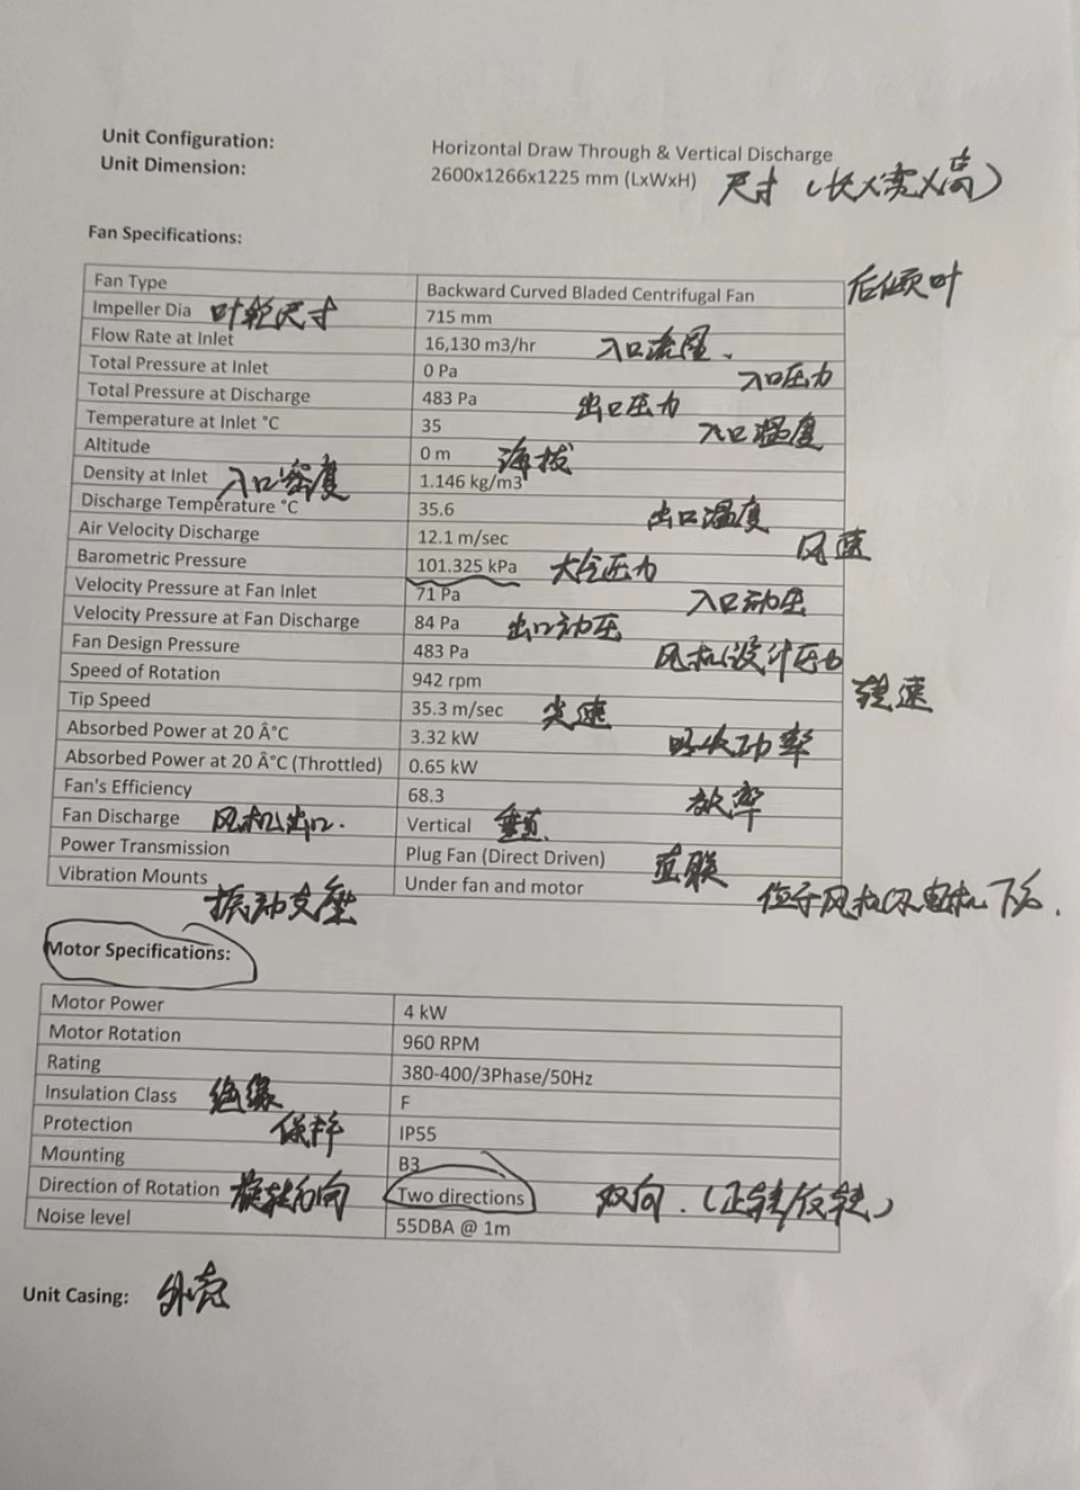 Unit Configuration: Horizontal Draw Through & Vertical Discharge
Unit Dimension: 2600x1266x1225 mm (LxWxH) 尺寸 (长X宽X高)
Fan Specifications:
Fan Type Backward Curved Bladed Centrifugal Fan 后倾叶
Impeller Dia 叶轮尺寸 715 mm
Flow Rate at Inlet 16,130 m3/hr 入口流量.
Total Pressure at Inlet 0 Pa 入口压力
Total Pressure at Discharge 483 Pa 出口压力
Temperature at Inlet °C 35 入口温度
Altitude 0 m 海拔
Density at Inlet 入口密度 1.146 kg/m3
Discharge Temperature °C 35.6 出口温度
Air Velocity Discharge 12.1 m/sec 风速
Barometric Pressure 101.325 kPa 大气压力
Velocity Pressure at Fan Inlet 71 Pa 入口动压
Velocity Pressure at Fan Discharge 84 Pa 出口动压
Fan Design Pressure 483 Pa 风机设计压力
Speed of Rotation 942 rpm 转速
Tip Speed 35.3 m/sec 尖速
Absorbed Power at 20 Â°C 3.32 kW 吸收功率
Absorbed Power at 20 Â°C (Throttled) 0.65 kW
Fan's Efficiency 68.3 效率
Fan Discharge 风机出口. Vertical 垂直.
Power Transmission Plug Fan (Direct Driven) 直联
Vibration Mounts 振动支座 Under fan and motor 位于风机及电机下方.
Motor Specifications:
Motor Power 4 kW
Motor Rotation 960 RPM
Rating 380-400/3Phase/50Hz
Insulation Class 绝缘 F
Protection 保护 IP55
Mounting B3
Direction of Rotation 旋转方向 Two directions 双向. (正转/反转)
Noise level 55DBA @ 1m
Unit Casing: 外壳